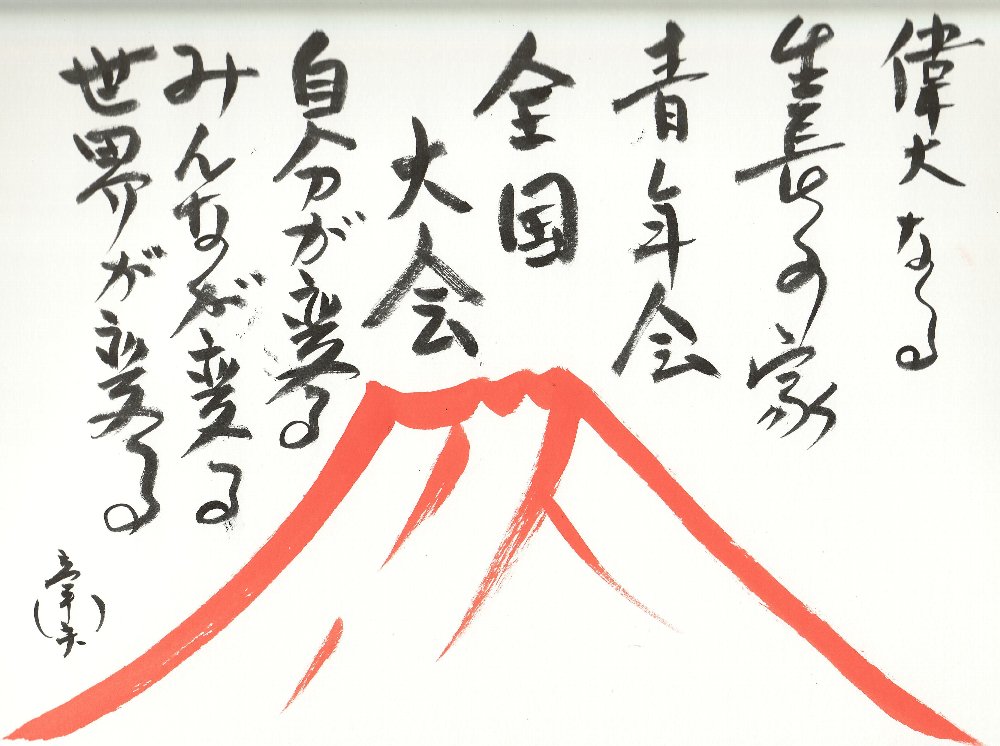 偉大なる
生長の家
青年会
全国
大会
自分が変る
みんなが変る
世界が変る